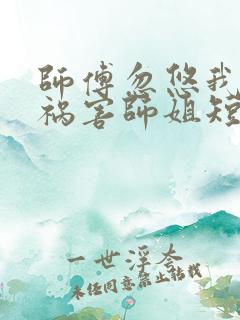 師傅忽悠我
祸害師姐短
一世浮奈
未经同意禁止转载